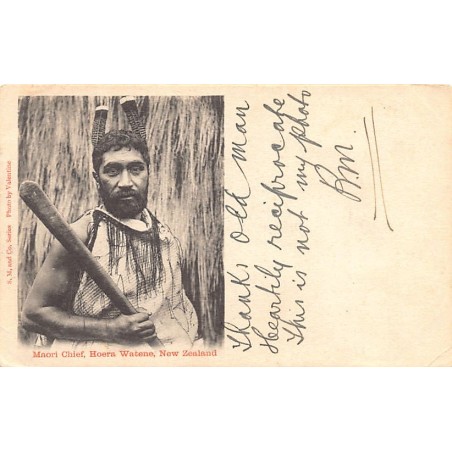 S. M. and Co. Series Photo by Valentine
Maori Chief, Hoera Watene, New Zealand
Thanks old man
Heartily reciprocate
This is not my photo
B.M.